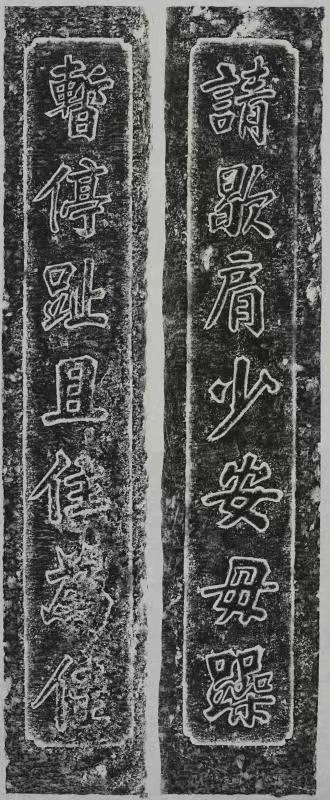 請歇肩少安毋躁
暫停趾且住為佳